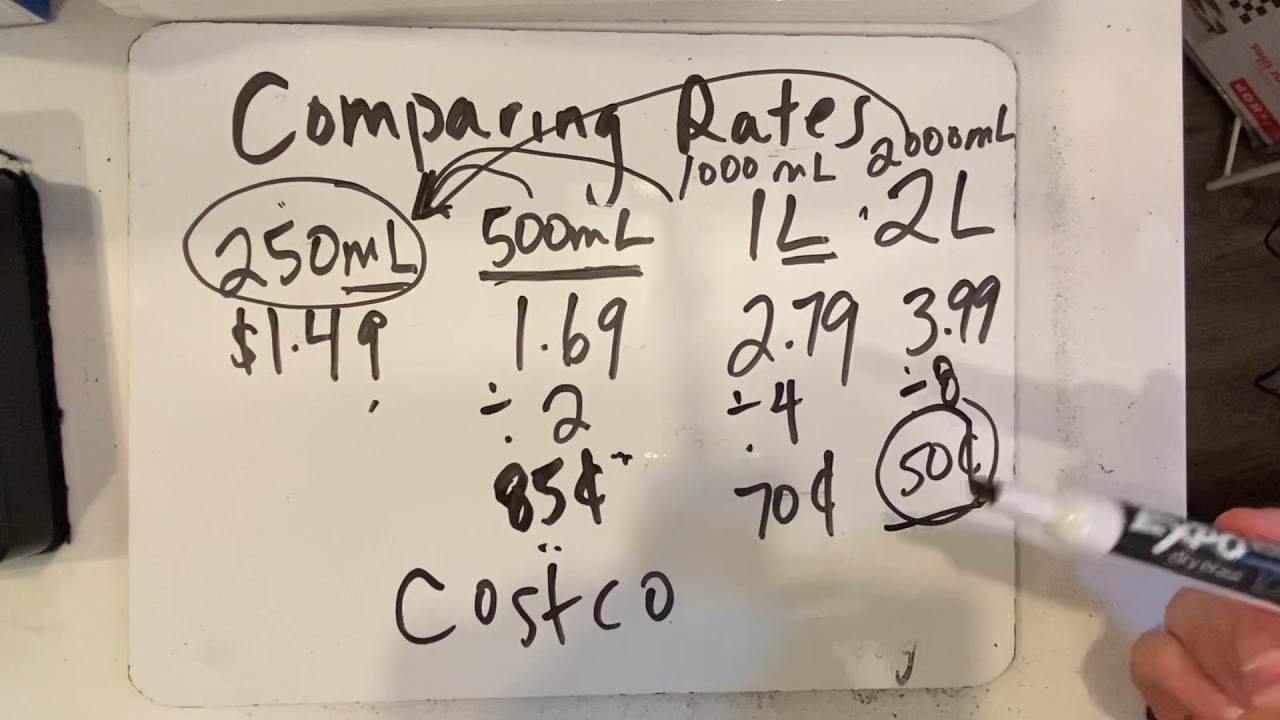 Comparing Rates
1000mL 2000mL
250mL 500mL 1L 2L
$1.49 1.69 2.79 3.99
÷2 ÷4 ÷8
85¢ 70¢ 50¢
Costco
EXPO
dry erase